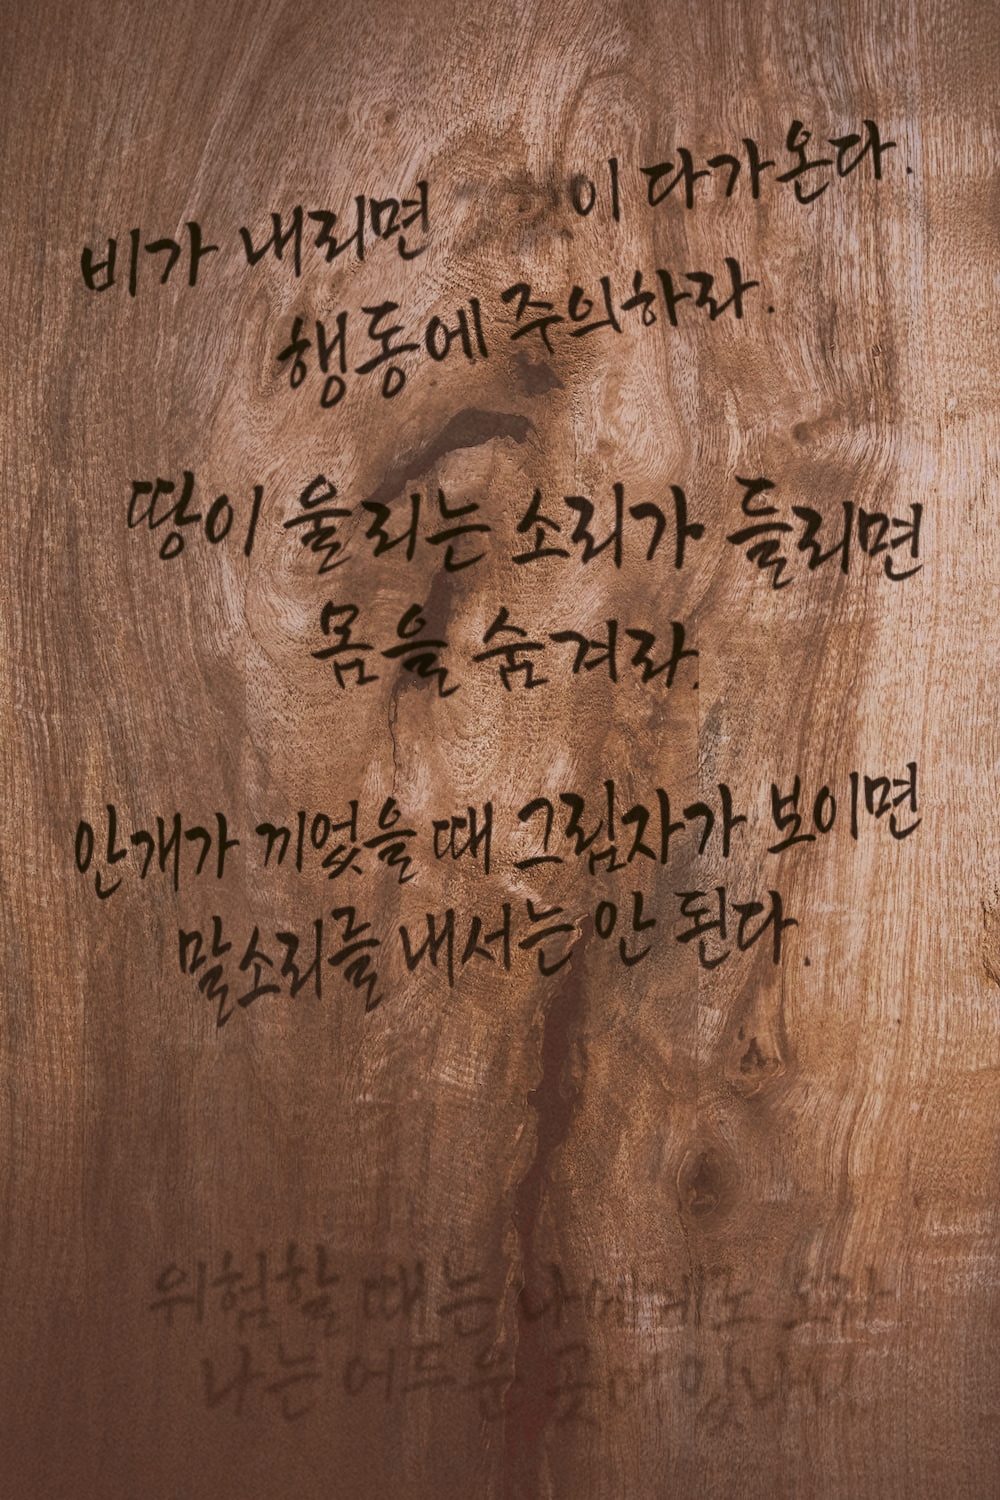 비가 내리면 이 다가온다.
행동에 주의하라.
땅이 울리는 소리가 들리면
몸을 숨겨라.
안개가 끼었을 때 그림자가 보이면
말소리를 내서는 안 된다.
위험할 때는
나는 어두운